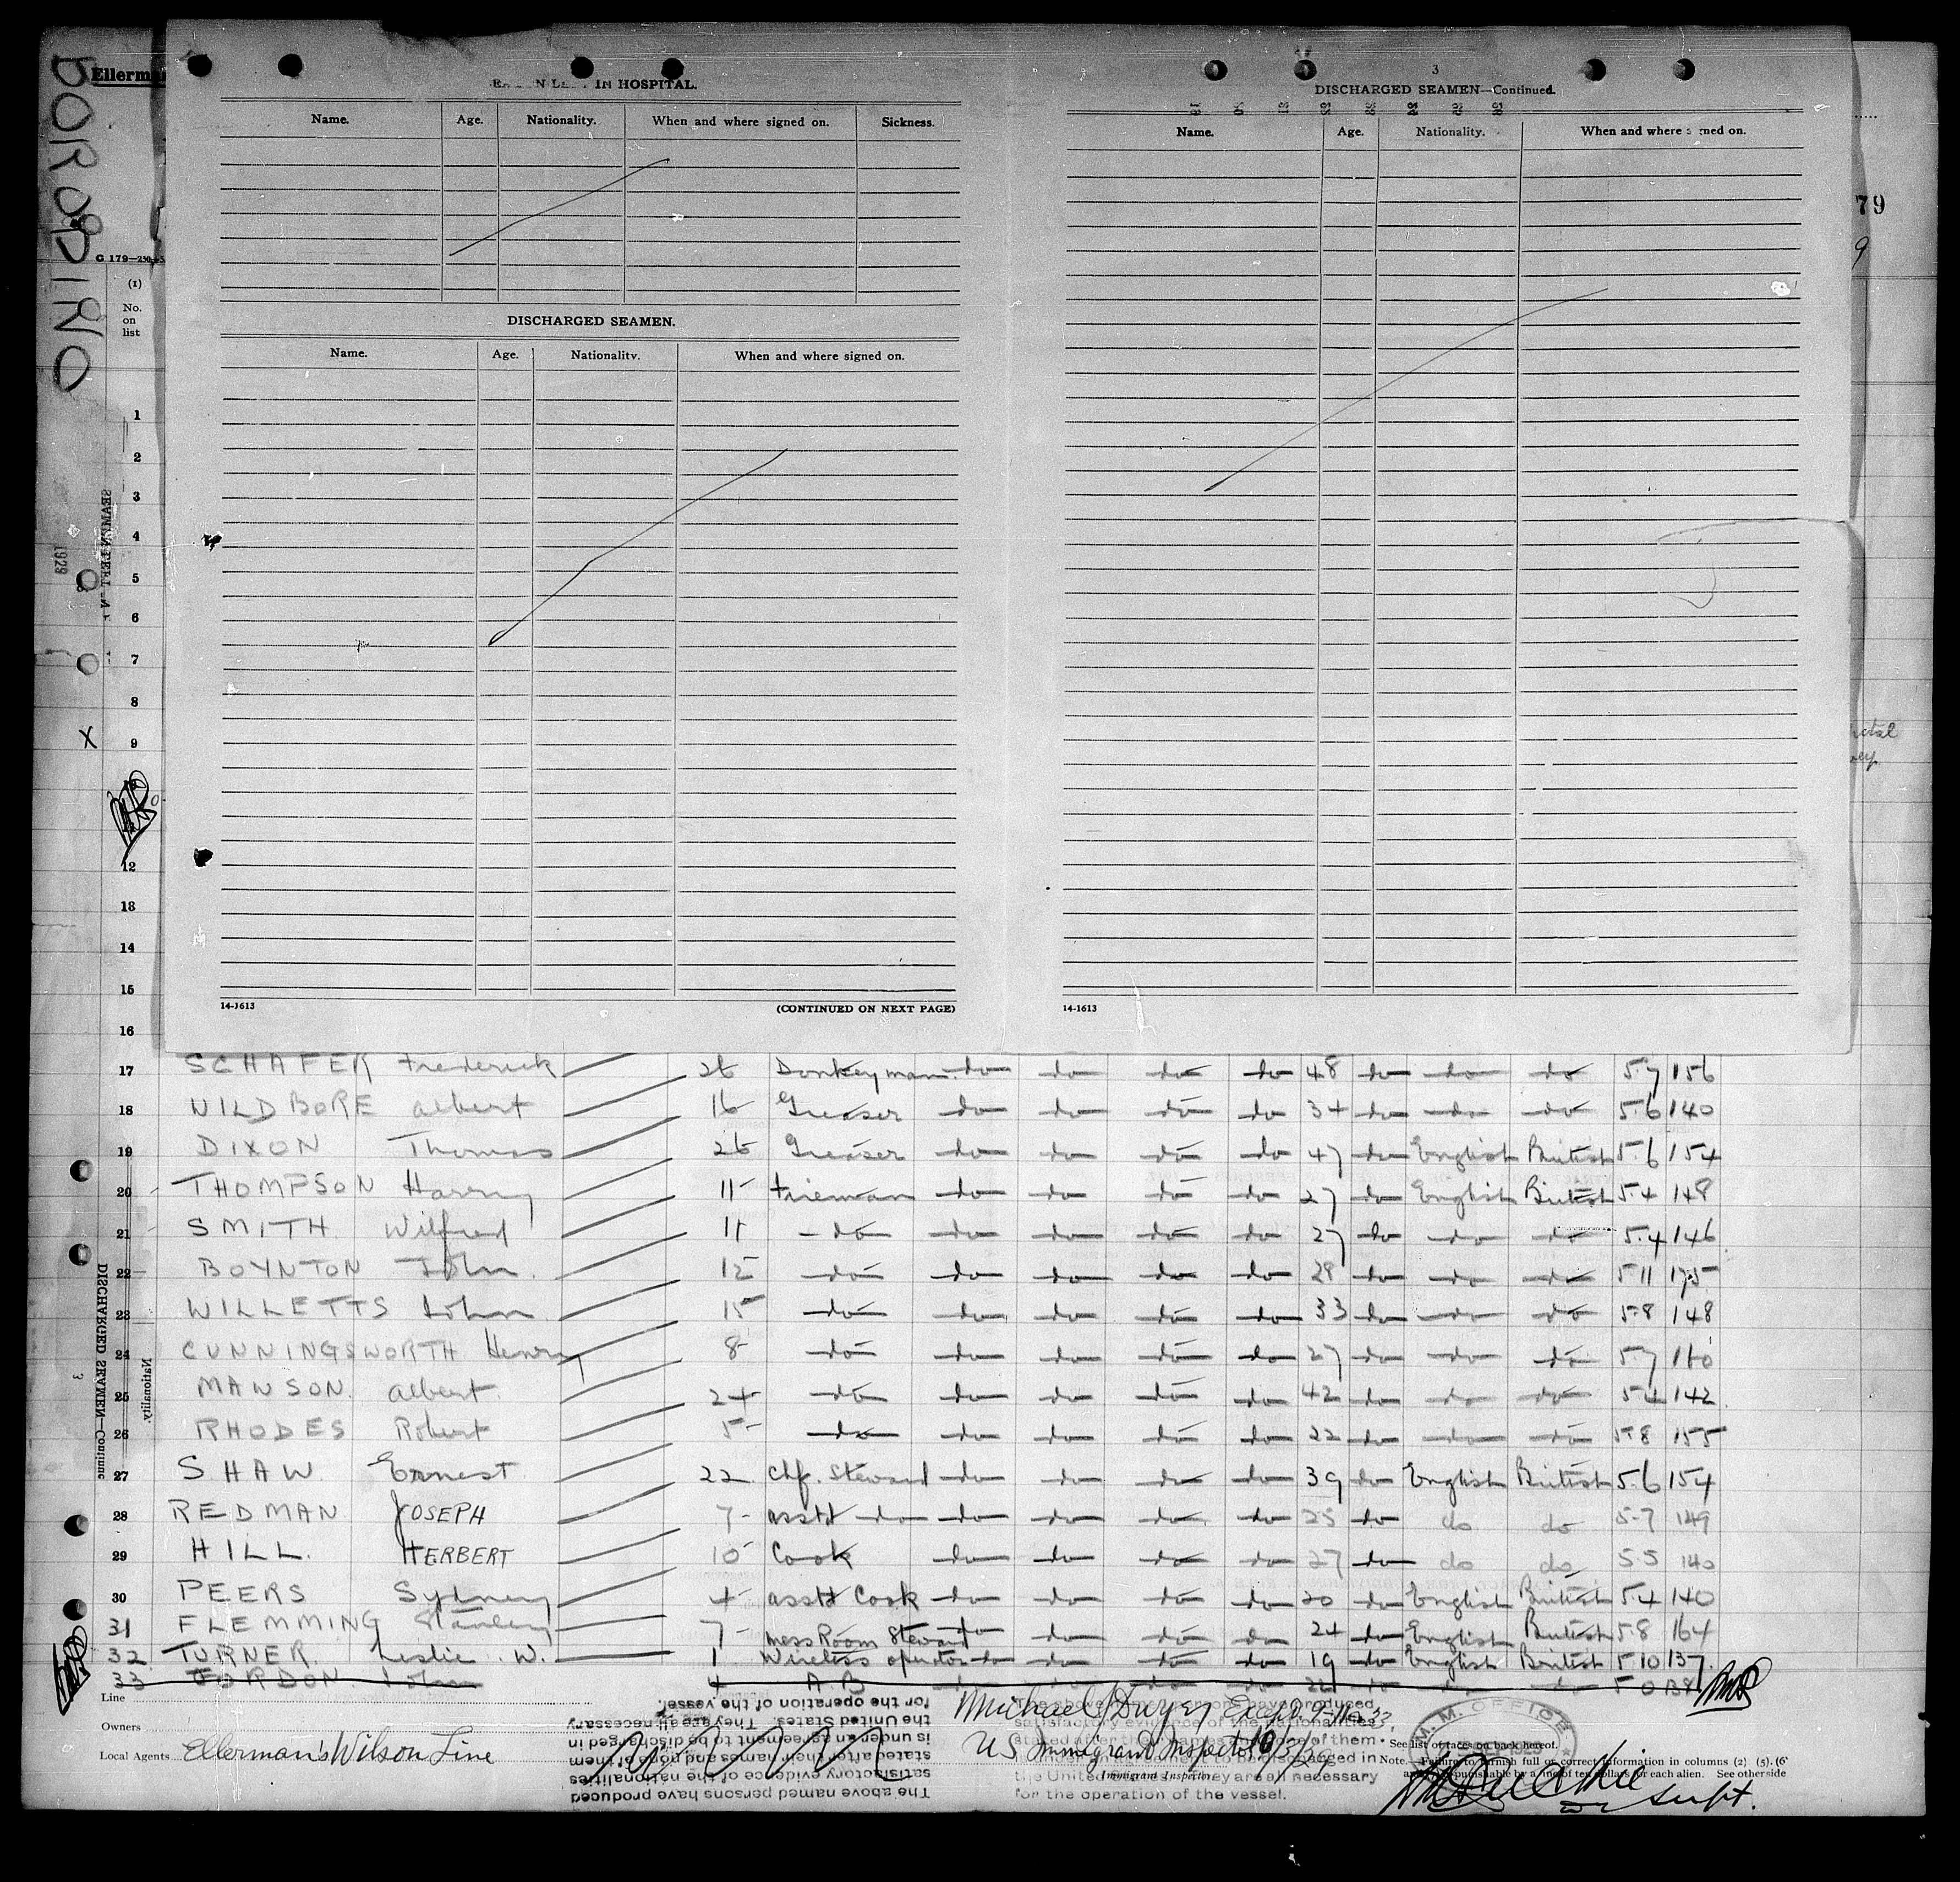 BORODINO
Ellerma
IN HOSPITAL.
Name. Age. Nationality. When and where signed on. Sickness.
DISCHARGED SEAMEN.
Name. Age. Nationality. When and where signed on.
14-1613 (CONTINUED ON NEXT PAGE)
3
DISCHARGED SEAMEN—Continued.
Name. Age. Nationality. When and where signed on.
14-1613
79
9
G 179—250
(1)
No.
on
list
1
2
3
4
5
6
7
8
X 9
12
13
14
15
16
1929
17 SCHAFER Frederick 26 Donkeyman do do do do 48 do do do 5.7 156
18 WILDBORE Albert 16 Greaser do do do do 34 do do do 5.6 140
19 DIXON Thomas 26 Greaser do do do do 47 do English British 5.6 154
20 THOMPSON Harry 11 Fireman do do do do 27 do English British 5.4 148
21 SMITH Wilfred 11 do do do do do 27 do do do 5.4 146
22 BOYNTON John 12 do do do do do 28 do do do 5 11 175
23 WILLETTS John 15 do do do do do 33 do do do 5.8 148
24 CUNNINGSWORTH Henry 8 do do do do do 27 do do do 5.7 160
25 MANSON Albert 24 do do do do do 42 do do do 5.4 142
26 RHODES Robert 5 do do do do do 22 do do do 5.8 155
27 SHAW Ernest 22 Chf. Steward do do do do 39 do English British 5.6 154
28 REDMAN JOSEPH 7 asstt do do do do do 25 do do do 5-7 149
29 HILL. HERBERT 10 Cook do do do do 27 do do do 5.5 140
30 PEERS Sydney 4 asstt Cook do do do do 20 do English British 5.4 140
31 FLEMMING Stanley 7 Mess Room Steward do do do do 24 do English British 5.8 164
32 TURNER Leslie W. 1 Wireless operator do do do do 19 do English British 5 10 137
33 John 4 A.B
DISCHARGED SEAMEN—Continue
3
Nationality.
Line
Owners
Local Agents Ellerman's Wilson Line
The above named persons have produced
satisfactory evidence of the nationalities
stated after their names and none of them
is under an agreement to be discharged in
the United States. They are all necessary
for the operation of the vessel.
Michael J Dwyer
US Immigrant Inspector 10/5/29
Immigrant Inspector
The above named persons have produced
satisfactory evidence of the nationalities
stated after their names and none of them
is under an agreement to be discharged in
the United States. They are all necessary
for the operation of the vessel.
M. M. OFFICE
See list of races on back hereof.
Note.—Failure to furnish full or correct information in columns (2) (5), (6
are punishable by a fine of ten dollars for each alien. See otherside
Supt.